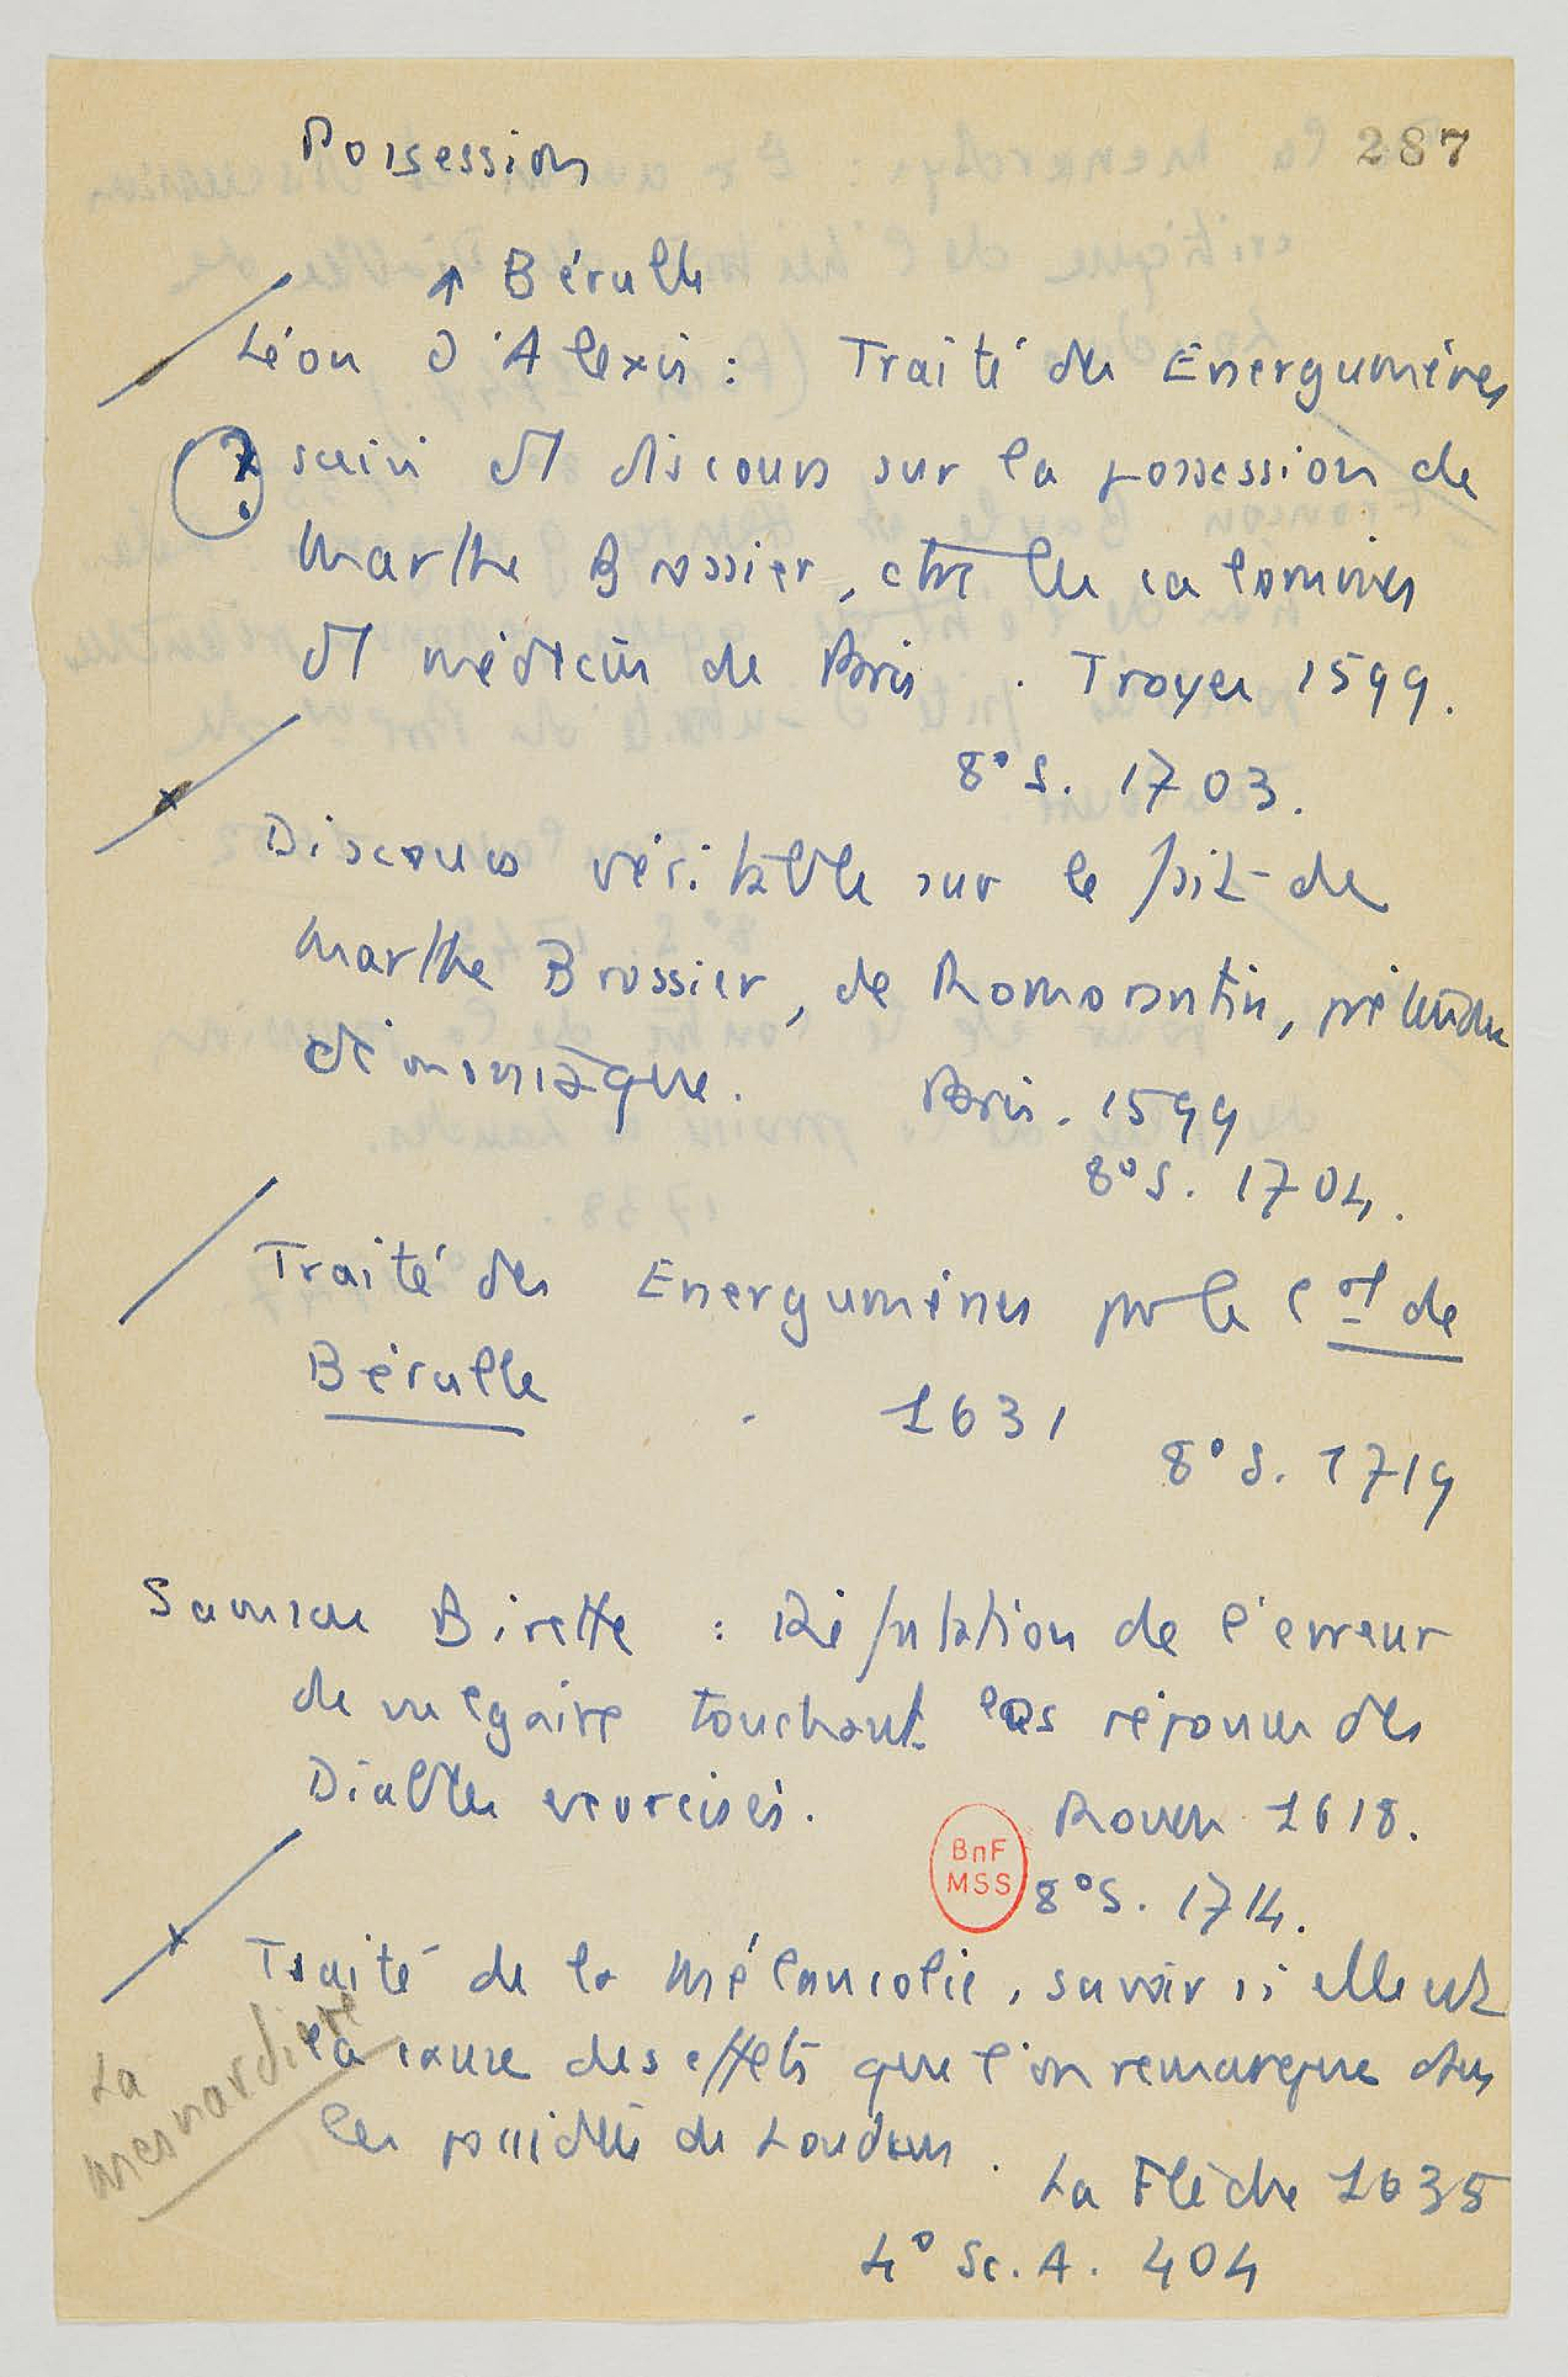 287
Possession
↑ Bérulle
Léon d'Alexis : Traité des Energumènes
? suivi d'1 discours sur la possession de
Marthe Brossier, ctre les calomnies
d'1 médecin de Paris . Troyes 1599.
8° S. 1703.
Discours véritable sur le fait de
Marthe Brossier, de Romorantin, prétendue
démoniaque. Paris. 1599
8° S. 1704.
Traité des Energumènes par le Cal de
Bérulle . 1631
8° S. 1719
Birette : Réfutation de l'erreur
de vulgaire touchant les réponses des
Diables exorcisés. Rouen 1618.
BnF
MSS
8° S. 1714.
Traité de la Mélancolie, savoir si elle est
la cause des effets que l'on remarque ds
les possédées de Loudun .
La Mesnardière
La Flèche 1635
4° Sc. A. 404